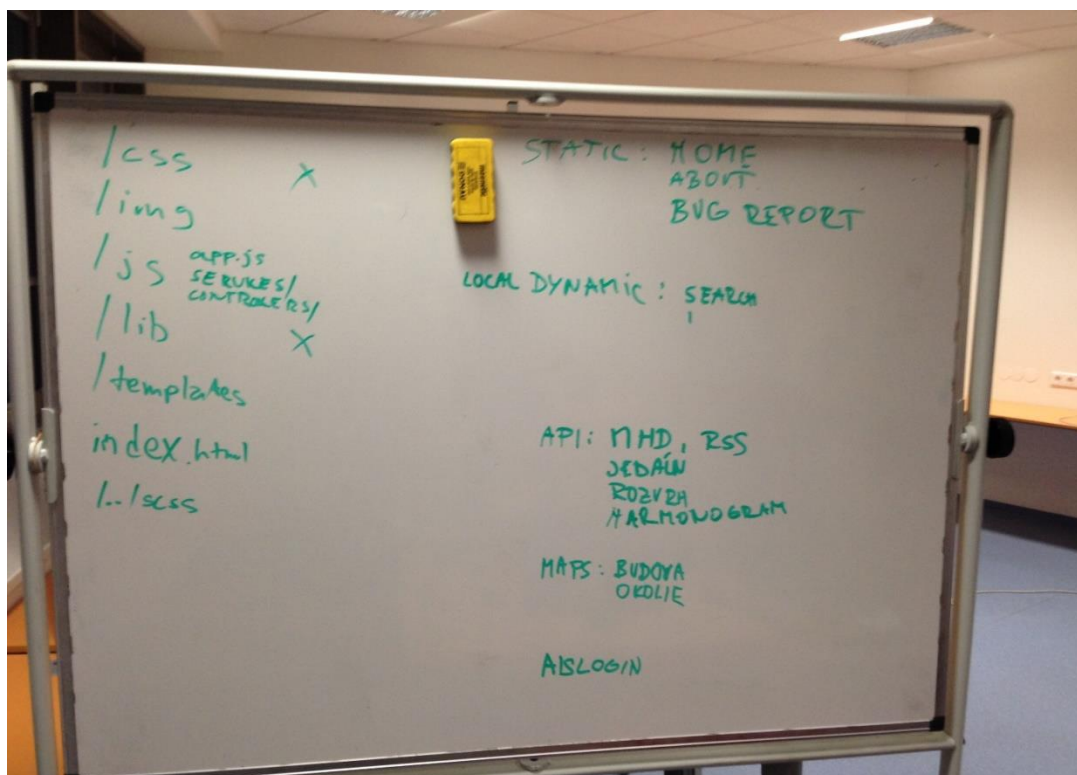 /css X
/img
/js app.js
SERVICES/
CONTROLERS/
/lib X
/templates
index.html
/../scss
STATIC: HOME
ABOUT
BUG REPORT
LOCAL DYNAMIC: SEARCH
API: MHD, RSS
JEDÁLN
ROZVRH
HARMONOGRAM
MAPS: BUDOVA
OKOLIE
AISLOGIN